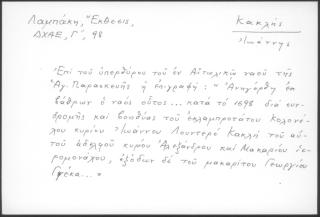 Λαμπάκη, "Έκθεσις,
ΔΧΑΕ, Γ', 98
Κακλῆς
Ἰωάννης
Ἐπί τοῦ ὑπερθύρου τοῦ ἐν Αἰτωλικῷ ναοῦ τῆς
Ἁγ. Παρασκευῆς ἡ ἐπιγραφή: "Ἀνηγέρθη ἐκ
βάθρων ὁ ναός οὗτος... κατά τό 1698 διά συν-
δρομῆς καί βοηθείας τοῦ ἐκλαμπροτάτου κολονέ-
λου κυρίου Ἰωάννου Λουντέρο Κακλῆ τοῦ αὐ-
τοῦ ἀδελφοῦ κυρίου Ἀλεξάνδρου καί Μακαρίου ἱε-
ρομονάχου, ἐξόδων δέ τοῦ μακαρίτου Γεωργίου
Γκέκα..."